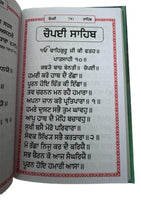 ਚੌਪਈ ਸਾਹਿਬ
ੴ ਵਾਹਿਗੁਰੂ ਜੀ ਕੀ ਫਤਹ॥
ਪਾਤਸ਼ਾਹੀ ੧੦॥
ਕਬਯੋ ਬਾਚ ਬੇਨਤੀ॥ ਚੌਪਈ॥
ਹਮਰੀ ਕਰੋ ਹਾਥ ਦੈ ਰੱਛਾ॥
ਪੂਰਨ ਹੋਇ ਚਿੱਤ ਕੀ ਇੱਛਾ॥
ਤਵ ਚਰਨਨ ਮਨ ਰਹੈ ਹਮਾਰਾ॥
ਅਪਨਾ ਜਾਨ ਕਰੋ ਪ੍ਰਤਿਪਾਰਾ॥੧॥
ਹਮਰੇ ਦੁਸਟ ਸਭੈ ਤੁਮ ਘਾਵਹੁ॥
ਆਪੁ ਹਾਥ ਦੈ ਮੋਹਿ ਬਚਾਵਹੁ॥
ਸੁਖੀ ਬਸੈ ਮੋਰੋ ਪਰਿਵਾਰਾ॥
ਸੇਵਕ ਸਿੱਖਯ ਸਭੈ ਕਰਤਾਰਾ॥੨॥
ਮੋ ਰੱਛਾ ਨਿਜ ਕਰ ਦੈ ਕਰਿਯੈ॥
ਸਭ ਬੈਰਨ ਕੌ ਆਜ ਸੰਘਰਿਯੈ॥
ਪੂਰਨ ਹੋਇ ਹਮਾਰੀ ਆਸਾ॥